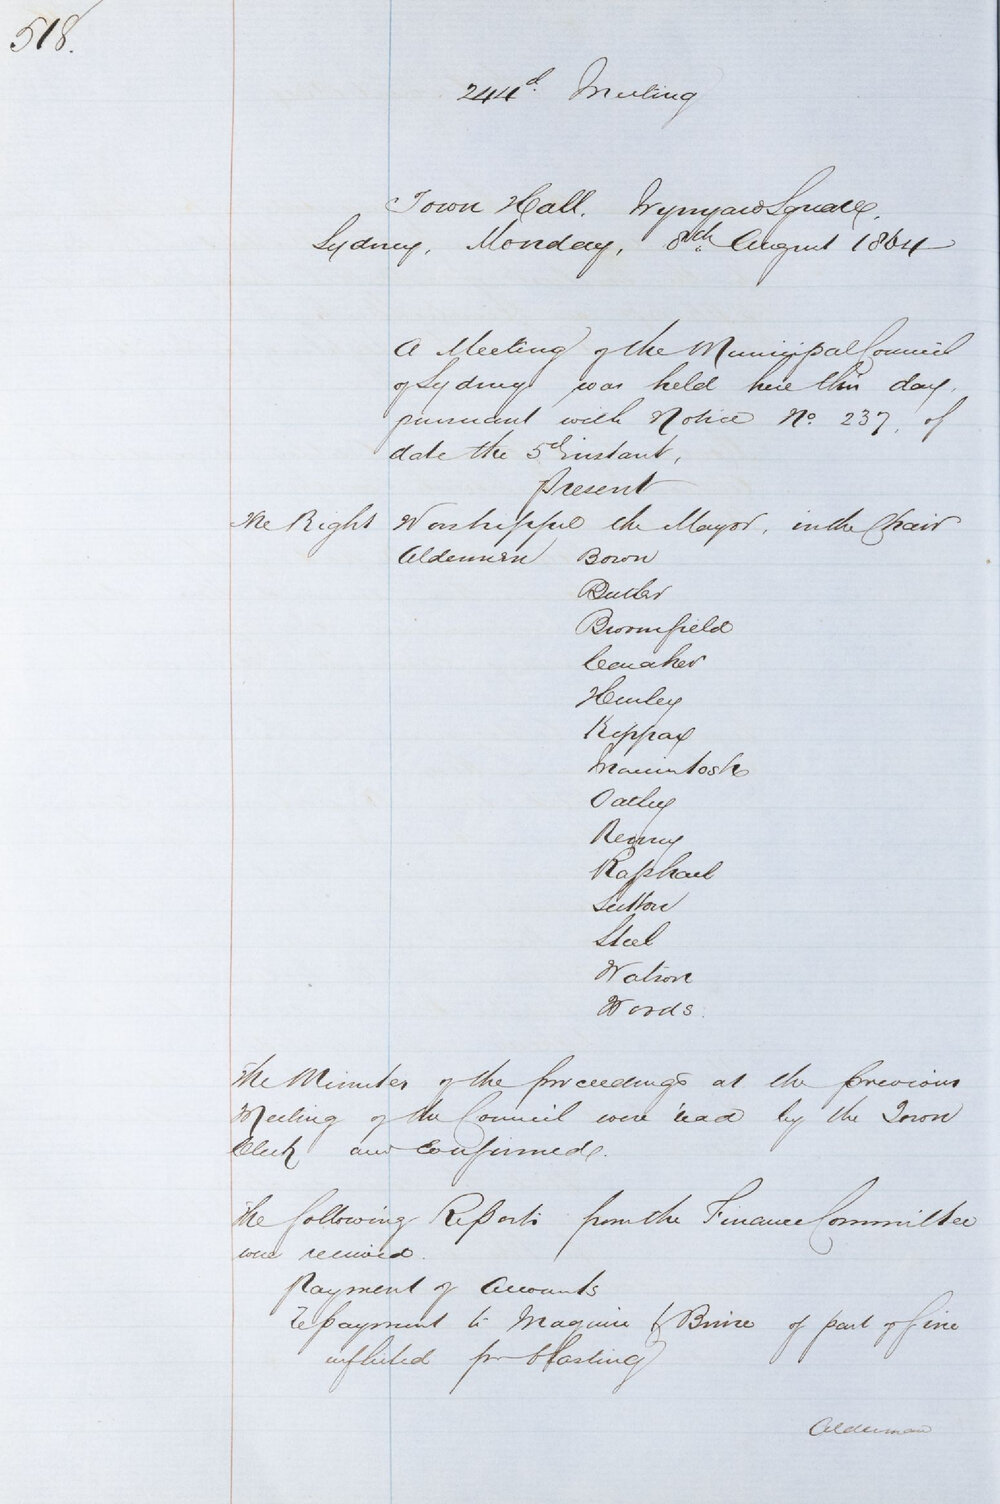 518.
244d. Meeting
Town Hall. Wynyard Square,
Sydney, Monday, 8th August 1864
A Meeting of the Municipal Council
of Sydney was held here this day,
pursuant with Notice No 237, of
date the 5d instant,
Present
The Right Worshipful the Mayor, in the Chair
Aldermen Bown
Butler
Broomfield
Couaher
Hurley
Kippax
Macintosh
Oatley
Renny
Raphael
Sutton
Steel
Watson
Woods.
The Minutes of the proceedings at the previous
Meeting of the Council were read by the Town
Clerk and Confirmed.
The following Reports from the Finance Committee
were received.
Payment of Accounts
Repayment to Maguire & of part of fine
inflicted for blasting
Alderman